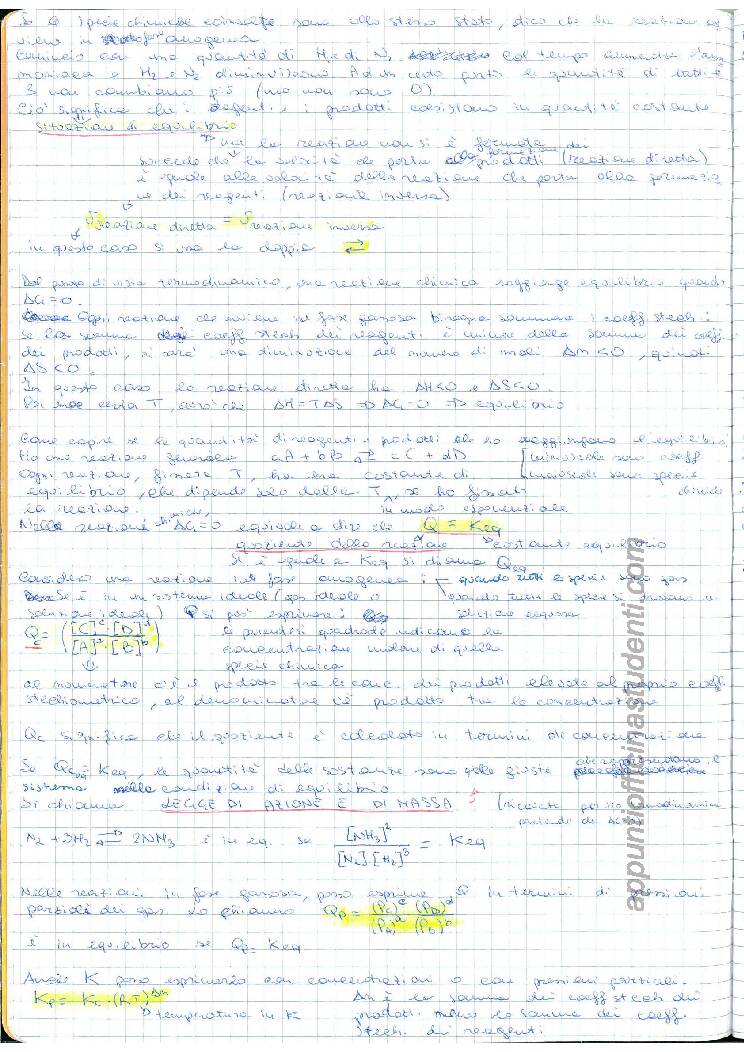 specie chimiche coinvolte sono allo stesso stato, dico che la reazione av
viene in fase omogenea
Comincio con una quantità di H₂ e di N₂ Col tempo aumenta l'am
moniaca e H₂ e N₂ diminuiscono A un certo punto le quantità di tutti e
3 non cambiano più (ma non sono 0)
Ciò significa che i reagenti e i prodotti coesistono in quantità costante
situazione di equilibrio
ma la reazione non si è fermata
succede che la velocità che porta alla formazione dei prodotti (reazione diretta)
è uguale alla velocità della reazione che porta alla formazio
ne dei reagenti (reazione inversa)
V reazione diretta = V reazione inversa
in questo caso si usa la doppia ⇄
Dal punto di vista termodinamico, una reazione chimica raggiunge equilibrio quando
ΔG=0.
Ogni reazione che avviene in fase gassosa bisogna sommare i coeff stech.:
se la somma coeff stech dei reagenti è minore della somma dei coeff.
dei prodotti, si avrà una diminuzione del numero di moli Δn<0, quindi
ΔS<0.
In questo caso la reazione diretta ha ΔH<0 e ΔS<0.
una certa T, avrò che ΔH=TΔS ⇒ ΔG=0 ⇒ equilibrio
Come capire se le quantità di reagenti e prodotti che ho raggiungono l'equilibrio
Ho una reazione generale aA + bB ⇄ cC + dD [minuscole sono coeff
Ogni reazione, fissata T, ha una costante di [maiuscole sono specie
equilibrio, che dipende solo dalla T, se ho fissato chimiche
la reazione. in modo esponenziale
Nelle reazioni chimiche, ΔG=0 equivale a dire che Q = Keq
quoziente della reazione costante equilibrio
Se è uguale a Keq si chiama Qeq
Considero una reazione in fase omogenea: quando tutte le specie sono gas
Se è in un sistema ideale (gas ideale o quando tutte le specie si trovano in
soluzione ideale) Q si può esprimere: soluzione acquosa
Qc = ([C]ᶜ·[D]ᵈ / [A]ᵃ·[B]ᵇ) le parentesi quadrate indicano la
concentrazione molare di quella
specie chimica
al numeratore c'è il prodotto tra le conc. dei prodotti elevate al proprio coeff.
stechiometrico, al denominatore c'è prodotto tra le concentrazioni
Qc significa che il quoziente è calcolato in termini di concentrazione
Se Qc = Keq, le quantità delle sostanze sono quelle giuste che rappresentano il
sistema nella condizione di equilibrio
Si chiama LEGGE DI AZIONE E DI MASSA (ricavata per via termodinamica
partendo da
N₂ + 3H₂ ⇄ 2NH₃ è in eq. se [NH₃]² / [N₂][H₂]³ = Keq
Nelle reazioni in fase gassosa, posso esprimere Q in termini di pressioni
parziali dei gas. Lo chiamo Qp = (Pc)ᶜ·(PD)ᵈ / (PA)ᵃ·(PB)ᵇ
è in equilibrio se Qp = Keq
Anche K posso esprimerlo con concentrazioni o con pressioni parziali.
Kp = Kc·(RT)^Δn Δn è la somma dei coeff stech dei
temperatura in K prodotti meno la somma dei coeff.
stech. dei reagenti
appuntiofficinastudenti.com